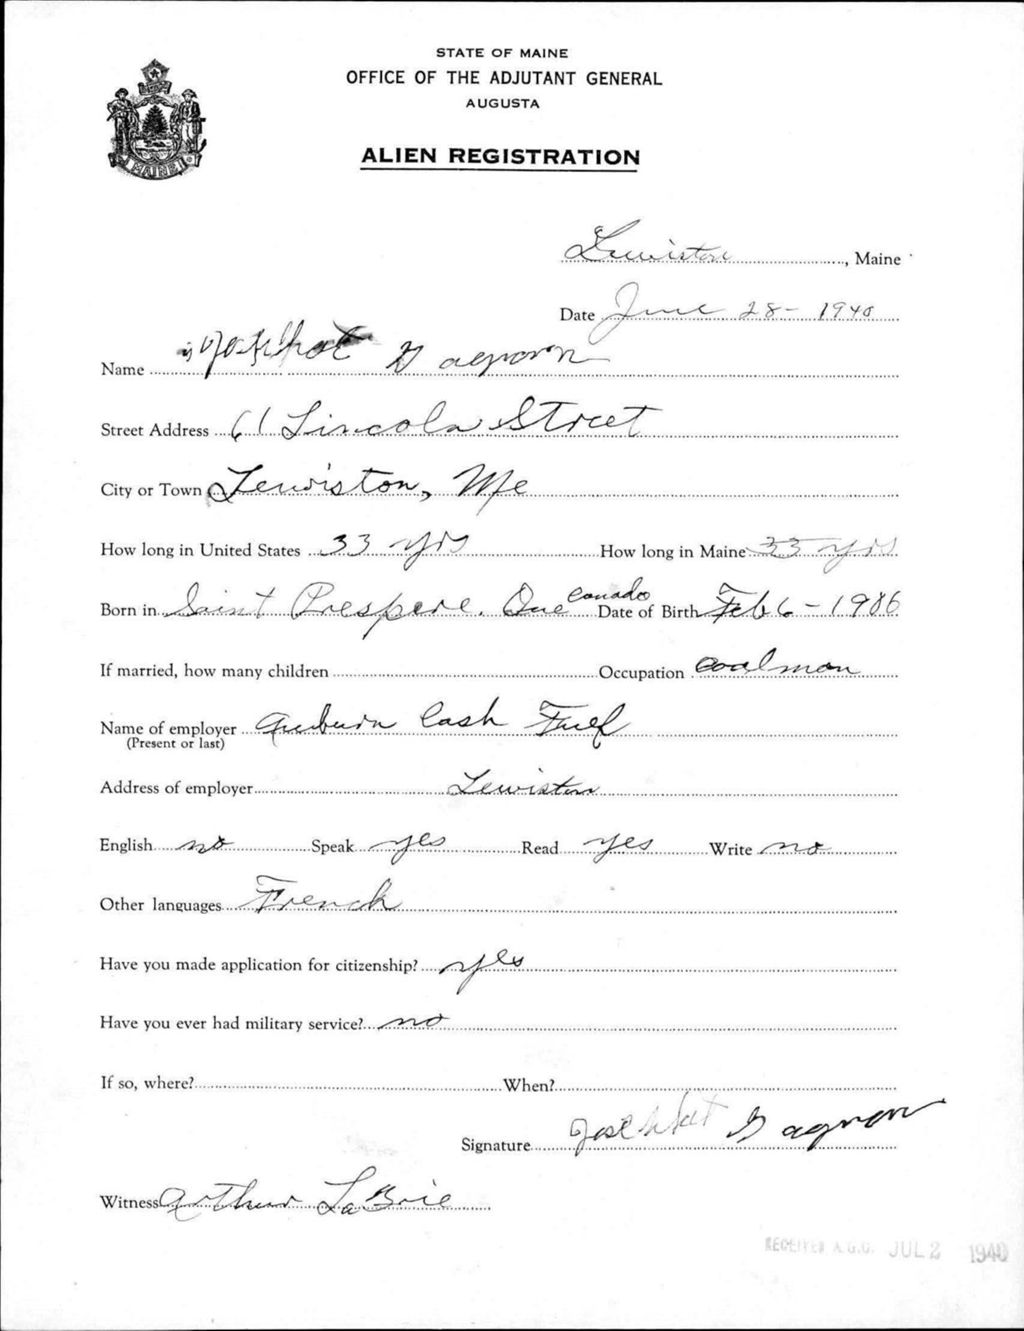 STATE OF MAINE
OFFICE OF THE ADJUTANT GENERAL
AUGUSTA
ALIEN REGISTRATION
MAINE
Lewiston, Maine
Date June 28- 1940
Name Gagnon
Street Address 61 Lincoln Street
City or Town Lewiston, Me
How long in United States 33 yrs How long in Maine 33 yrs
Born in Saint Prespere. Que Canada Date of Birth Feb 6 - 1906
If married, how many children Occupation Coalman
Name of employer Auburn Cash Fuel
(Present or last)
Address of employer Lewiston
English no Speak yes Read yes Write no
Other languages French
Have you made application for citizenship? yes
Have you ever had military service? no
If so, where? When?
Signature Gagnon
Witness Arthur LaBrie
RECEIVED A.G.O. JUL 2 1940